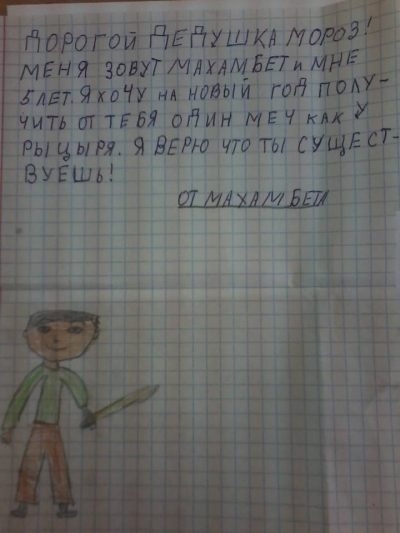 ДОРОГОЙ ДЕДУШКА МОРОЗ!
МЕНЯ ЗОВУТ МАХАМБЕТ и МНЕ
5 ЛЕТ. Я ХОЧУ НА НОВЫЙ ГОД ПОЛУ-
ЧИТЬ ОТ ТЕБЯ ОДИН МЕЧ КАК У
РЫЦЫРЯ. Я ВЕРЮ ЧТО ТЫ СУЩЕСТ-
ВУЕШЬ!
ОТ МАХАМБЕТА